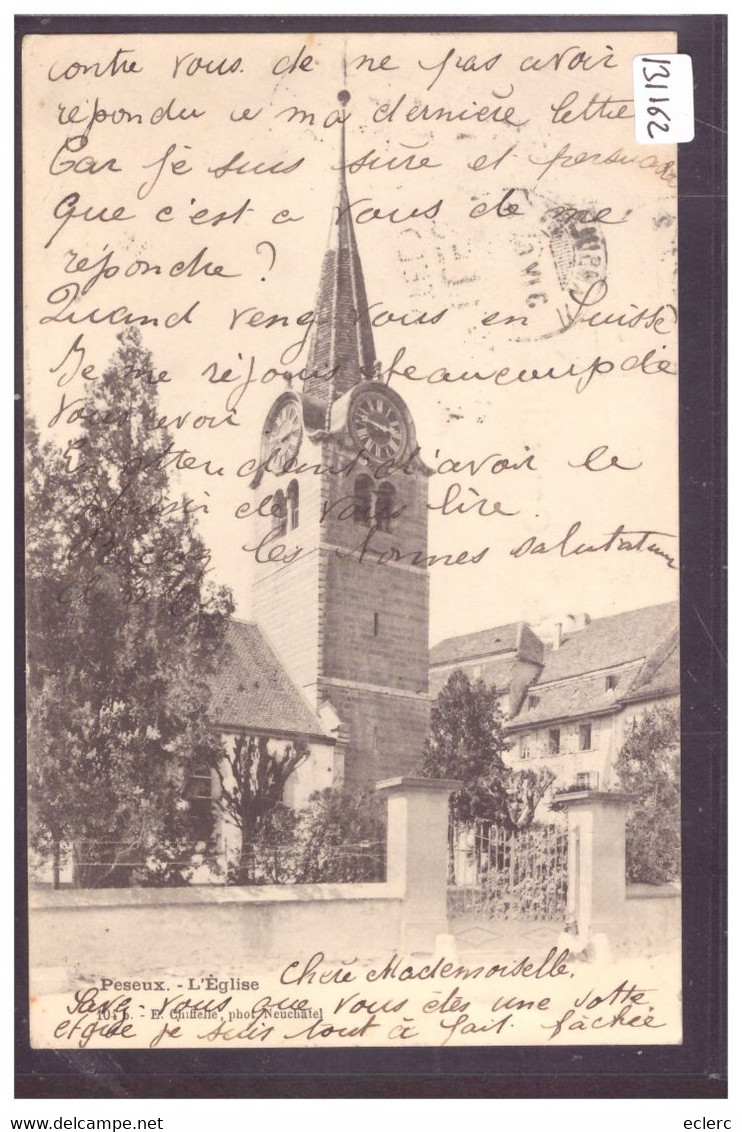 contre vous de ne pas avoir
répondu a ma dernière lettre
Car je suis sûre et persuadé
Que c'est a vous de me
répondre ?
Quand venez vous en Suisse
Je me réjouis beaucoup de
vous avoir
En attendant d'avoir le
plaisir de vous lire.
Recevez les bonnes salutations
131162
Peseux. - L'Église
Chère Mademoiselle,
Savez-vous que vous êtes une sotte
E. Chiffelle, phot. Neuchâtel
et que je suis tout à fait fâchée
eclerc